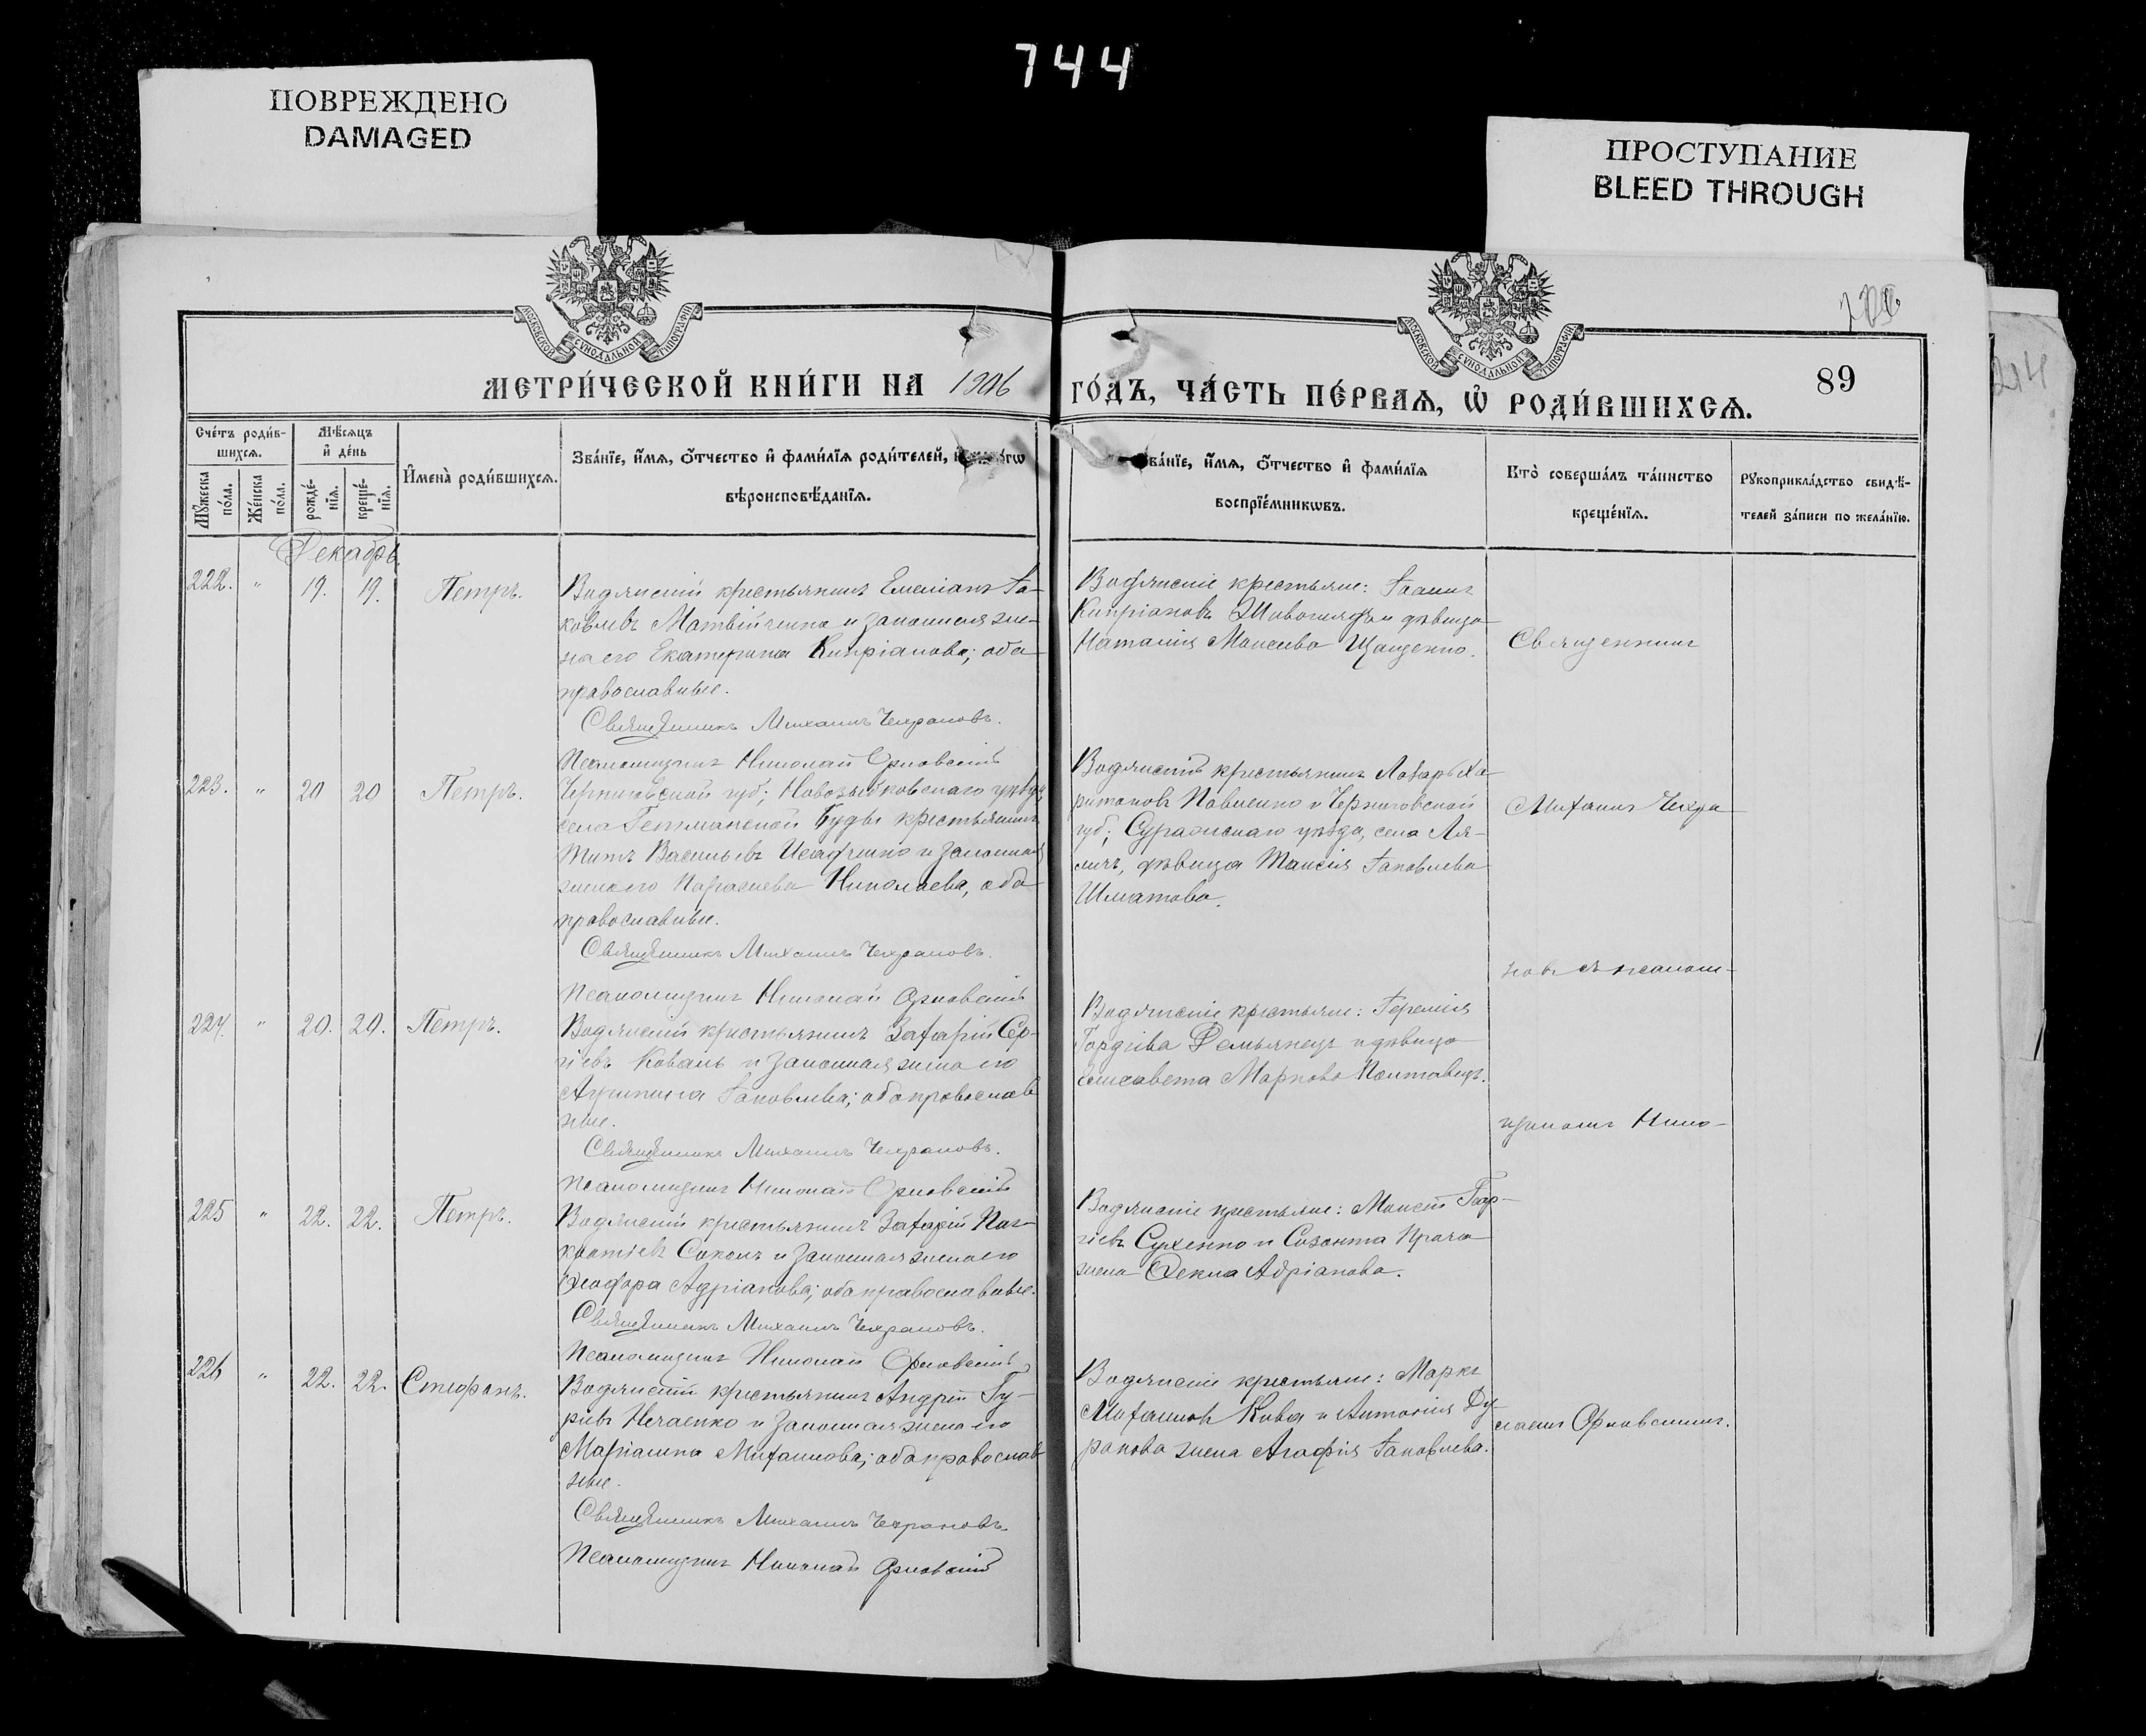 744
ПОВРЕЖДЕНО
DAMAGED
ПРОСТУПАНИЕ
BLEED THROUGH
МОСКОВСКОЙ СѴНОДАЛЬНОЙ ТИПОГРАФІИ
МОСКОВСКОЙ СѴНОДАЛЬНОЙ ТИПОГРАФІИ
214
89
МЕТРИ́ЧЕСКОЙ КНИ́ГИ НА 1906 ГО́ДЪ, ЧА́СТЬ ПЕ́РВАѦ, Ѡ҆ РОДИ́ВШИХСѦ.
Сче́тъ роди́в-
шихсѧ.
Мꙋ́жеска
по́ла.
Же́нска
по́ла.
Мѣ́сѧцъ
и҆ де́нь
рожде́-
нїѧ.
креще́-
нїѧ.
И҆мена̀ роди́вшихсѧ.
Зва́нїе, и҆́мѧ, о҆́тчество и҆ фами́лїѧ роди́телей,
вѣроисповѣ́данїѧ.
ва́нїе, и҆́мѧ, о҆́тчество и҆ фами́лїѧ
воспрїе́мникѡвъ.
Кто̀ соверша́лъ та́инство
креще́нїѧ.
Рꙋкоприкла́дство свидѣ́-
телей за́писи по жела́нїю.
Декабрь
222. " 19. 19. Петръ.
Водянскій крестьянинъ Емеліанъ Іа-
ковлевъ Матвійченко и законная же-
на его Екатерина Кипріанова; оба
православные.
Священникъ Михаилъ Чехрановъ.
Псаломщикъ Николай Орловскій
Водянскіе крестьяне: Іоаннъ
Кипріановъ и дѣвица
Наталія Моисеева Щащенко.
Священникъ
223. " 20 20 Петръ.
Черниговской губ; Новозыбковскаго уѣзда,
села Гетманской Буды крестьянинъ
Титъ Васильевъ и законная
жена его Параскева Николаева, оба
православные.
Священникъ Михаилъ Чехрановъ.
Псаломщикъ Николай Орловскій
Водянскій крестьянинъ Лазарь Ха-
ритоновъ Павленко и Черниговской
губ; Суражскаго уѣзда, села Ля-
личъ, дѣвица Таисія Іаковлева
Шматова.
Михаилъ Чехра
новъ съ псалом-
224. " 20. 20. Петръ.
Водянскій крестьянинъ Захарій Сер-
гіевъ Коваль и законная жена его
Агрипина Іаковлева; оба православ
ные.
Священникъ Михаилъ Чехрановъ.
Псаломщикъ Николай Орловскій
Водянскіе крестьяне: Іеремія
Гордіева Демьянецъ и дѣвица
Елисавета Маркова Полтавецъ.
щикомъ Нико-
225 " 22. 22. Петръ.
Водянскій крестьянинъ Захарій Пан-
кратіевъ Соколъ и законная жена его
Ѳеодора Адріанова; оба православные.
Священникъ Михаилъ Чехрановъ.
Псаломщикъ Николай Орловскій
Водянскіе крестьяне: Моисей Геор-
гіевъ Сухенко и Созонта Прача
жена Ѳекла Адріанова.
226 " 22. 22. Стефанъ.
Водянскій крестьянинъ Андрей Гу-
рьевъ Нечаенко и законная жена его
Маріанна Михаилова; оба православ
ные.
Священникъ Михаилъ Чехрановъ
Псаломщикъ Николай Орловскій
Водянскіе крестьяне: Маркъ
Михаиловъ Кова и Антонія Ду-
ранова жена Агафія Іаковлева.
лаемъ Орловскимъ.